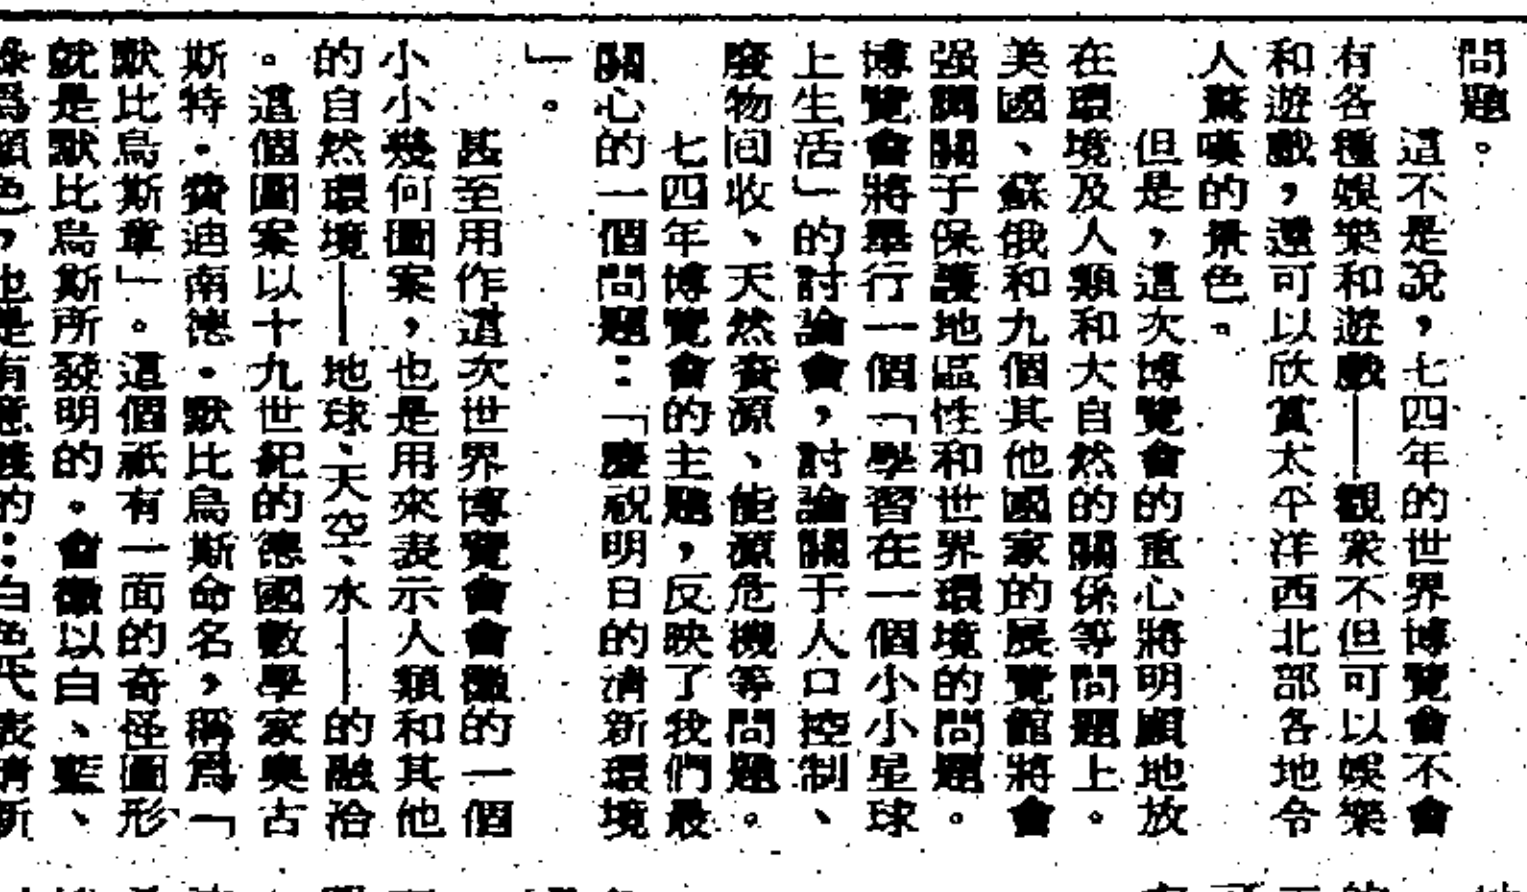 問題。
這不是說，七四年的世界博覽會不會
有各種娛樂和遊戲——觀衆不但可以娛樂
和遊戲，還可以欣賞太平洋西北部各地令
人驚嘆的景色。
但是，這次博覽會的重心將明顯地放
在環境及人類和大自然的關係等問題上。
美國、蘇俄和九個其他國家的展覽館將會
强調關于保護地區性和世界環境的問題。
博覽會將舉行一個「學習在一個小小星球
上生活」的討論會，討論關于人口控制、
廢物回收、天然資源、能源危機等問題。
七四年博覽會的主題，反映了我們最
關心的一個問題：「慶祝明日的清新環境
」。
甚至用作這次世界博覽會會徽的一個
小小幾何圖案，也是用來表示人類和其他
的自然環境——地球、天空、水——的融洽
。這個圖案以十九世紀的德國數學家奧古
斯特・費迪南德・默比烏斯命名，稱爲「
默比烏斯章」。這個祇有一面的奇怪圖形
就是默比烏斯所發明的。會徽以白、藍、
綠爲顏色，也是有意義的：白色代表清新